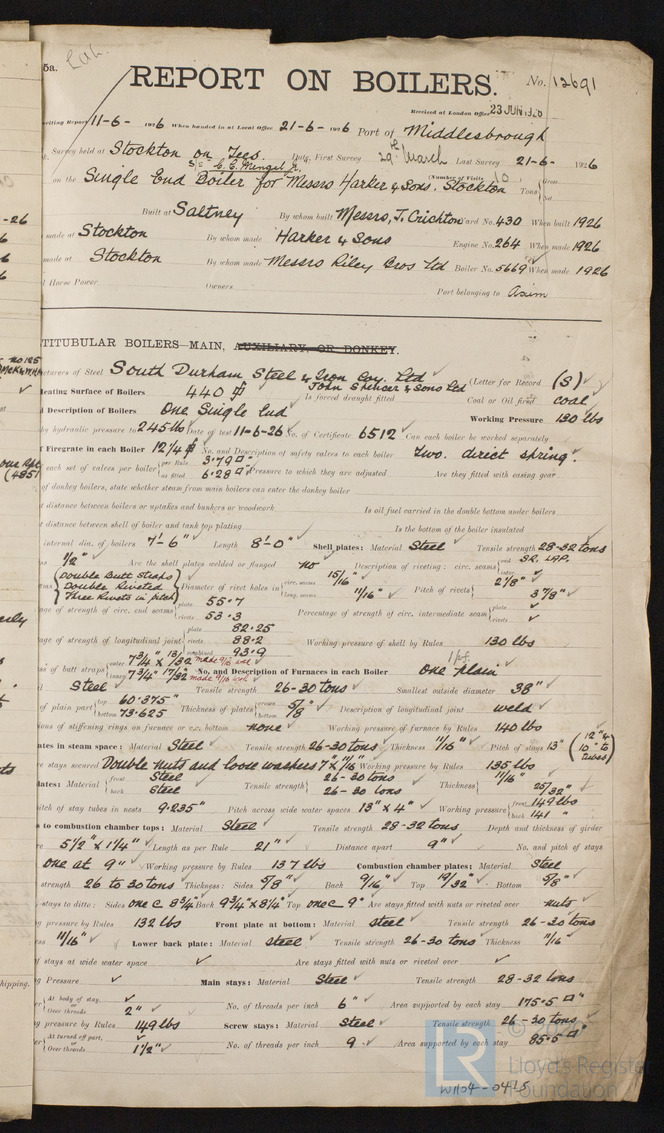 5a. Lah. REPORT ON BOILERS. No. 12691
Received at London Office 23 JUN 1926
writing Report 11-6- 1926 When handed in at Local Office 21-6- 1926 Port of Middlesbrough
Survey held at Stockton on Tees. Date, First Survey 29th March Last Survey 21-6- 1926
on the S/S C. E. Mingel Jr. (Number of Visits 10) Gross
Single End Boiler for Messrs Harker & Sons, Stockton Tons Net
Built at Saltney By whom built Messrs, J. Crichton Yard No. 430 When built 1926
made at Stockton By whom made Harker & Sons Engine No. 264 When made 1926
made at Stockton By whom made Messrs Riley Bros Ltd Boiler No. 5669 When made 1926
Horse Power Owners Port belonging to Axim
TITUBULAR BOILERS—MAIN, AUXILIARY, OR DONKEY.
cturers of Steel South Durham Steel & Iron Coy. Ltd John Spencer & Sons Ltd (Letter for Record (S))
Heating Surface of Boilers 440 ϕ Is forced draught fitted Coal or Oil fired coal
Description of Boilers One Single End Working Pressure 130 lbs
by hydraulic pressure to 245 lbs Date of test 11-6-26 No. of Certificate 6512 Can each boiler be worked separately
Firegrate in each Boiler 12 1/4 ϕ No. and Description of safety valves to each boiler Two. direct spring.
each set of valves per boiler per Rule 3.79 □" as fitted 6.28 □" Pressure to which they are adjusted Are they fitted with easing gear
of donkey boilers, state whether steam from main boilers can enter the donkey boiler
distance between boilers or uptakes and bunkers or woodwork Is oil fuel carried in the double bottom under boilers
distance between shell of boiler and tank top plating Is the bottom of the boiler insulated
internal dia. of boilers 7'-6" Length 8'-0" Shell plates: Material Steel Tensile strength 28-32 tons
1/2" Are the shell plates welded or flanged no Description of riveting: circ. seams end SR. LAP. inter.
Double Butt Straps Double Riveted Three Rivets in pitch Diameter of rivet holes in circ. seams 15/16" long. seams 11/16" Pitch of rivets 2 1/8" 3 7/8"
age of strength of circ. end seams plate 55.7 rivets 53.3 Percentage of strength of circ. intermediate seam plate rivets
age of strength of longitudinal joint plate 82.25 rivets 88.2 combined 93.9 Working pressure of shell by Rules 130 lbs
of butt straps outer 7 3/4" x 13/32 made 9/16 inner 7 3/4" x 17/32 made 9/16 No. and Description of Furnaces in each Boiler One plain
Steel Tensile strength 26-30 tons Smallest outside diameter 38"
of plain part top 60.375" bottom 73.625 Thickness of plates crown bottom 5/8" Description of longitudinal joint weld
ions of stiffening rings on furnace or c.c. bottom none Working pressure of furnace by Rules 140 lbs
ates in steam space: Material Steel Tensile strength 26-30 tons Thickness 11/16" Pitch of stays 13" (12" & 10" to tubes)
stays secured Double nuts and loose washers 7" x 11/16" Working pressure by Rules 135 lbs
lates: Material front Steel back Steel Tensile strength 26-30 tons 26-30 tons Thickness 11/16" 25/32"
pitch of stay tubes in nests 9.235" Pitch across wide water spaces 13" x 4" Working pressure front 149 lbs back 141 "
to combustion chamber tops: Material Steel Tensile strength 28-32 tons Depth and thickness of girder
5 1/2" x 1 1/4" Length as per Rule 21" Distance apart 9" No. and pitch of stays
one at 9" Working pressure by Rules 137 lbs Combustion chamber plates: Material Steel
strength 26 to 30 tons Thickness: Sides 5/8" Back 9/16" Top 19/32" Bottom 5/8"
stays to ditto: Sides one @ 8 3/4" Back 9 3/4" x 8 1/4" Top one @ 9" Are stays fitted with nuts or riveted over nuts
pressure by Rules 132 lbs Front plate at bottom: Material Steel Tensile strength 26-30 tons
11/16" Lower back plate: Material Steel Tensile strength 26-30 tons Thickness 11/16"
of stays at wide water space Are stays fitted with nuts or riveted over
Pressure Main stays: Material Steel Tensile strength 28-32 tons
At body of stay, or Over threads 2" No. of threads per inch 6" Area supported by each stay 175.5 □"
pressure by Rules 149 lbs Screw stays: Material Steel Tensile strength 26-30 tons
At turned off part, or Over threads 1 1/2" No. of threads per inch 9 Area supported by each stay 85.5 □"
LR Lloyd's Register Foundation
W1104-0415